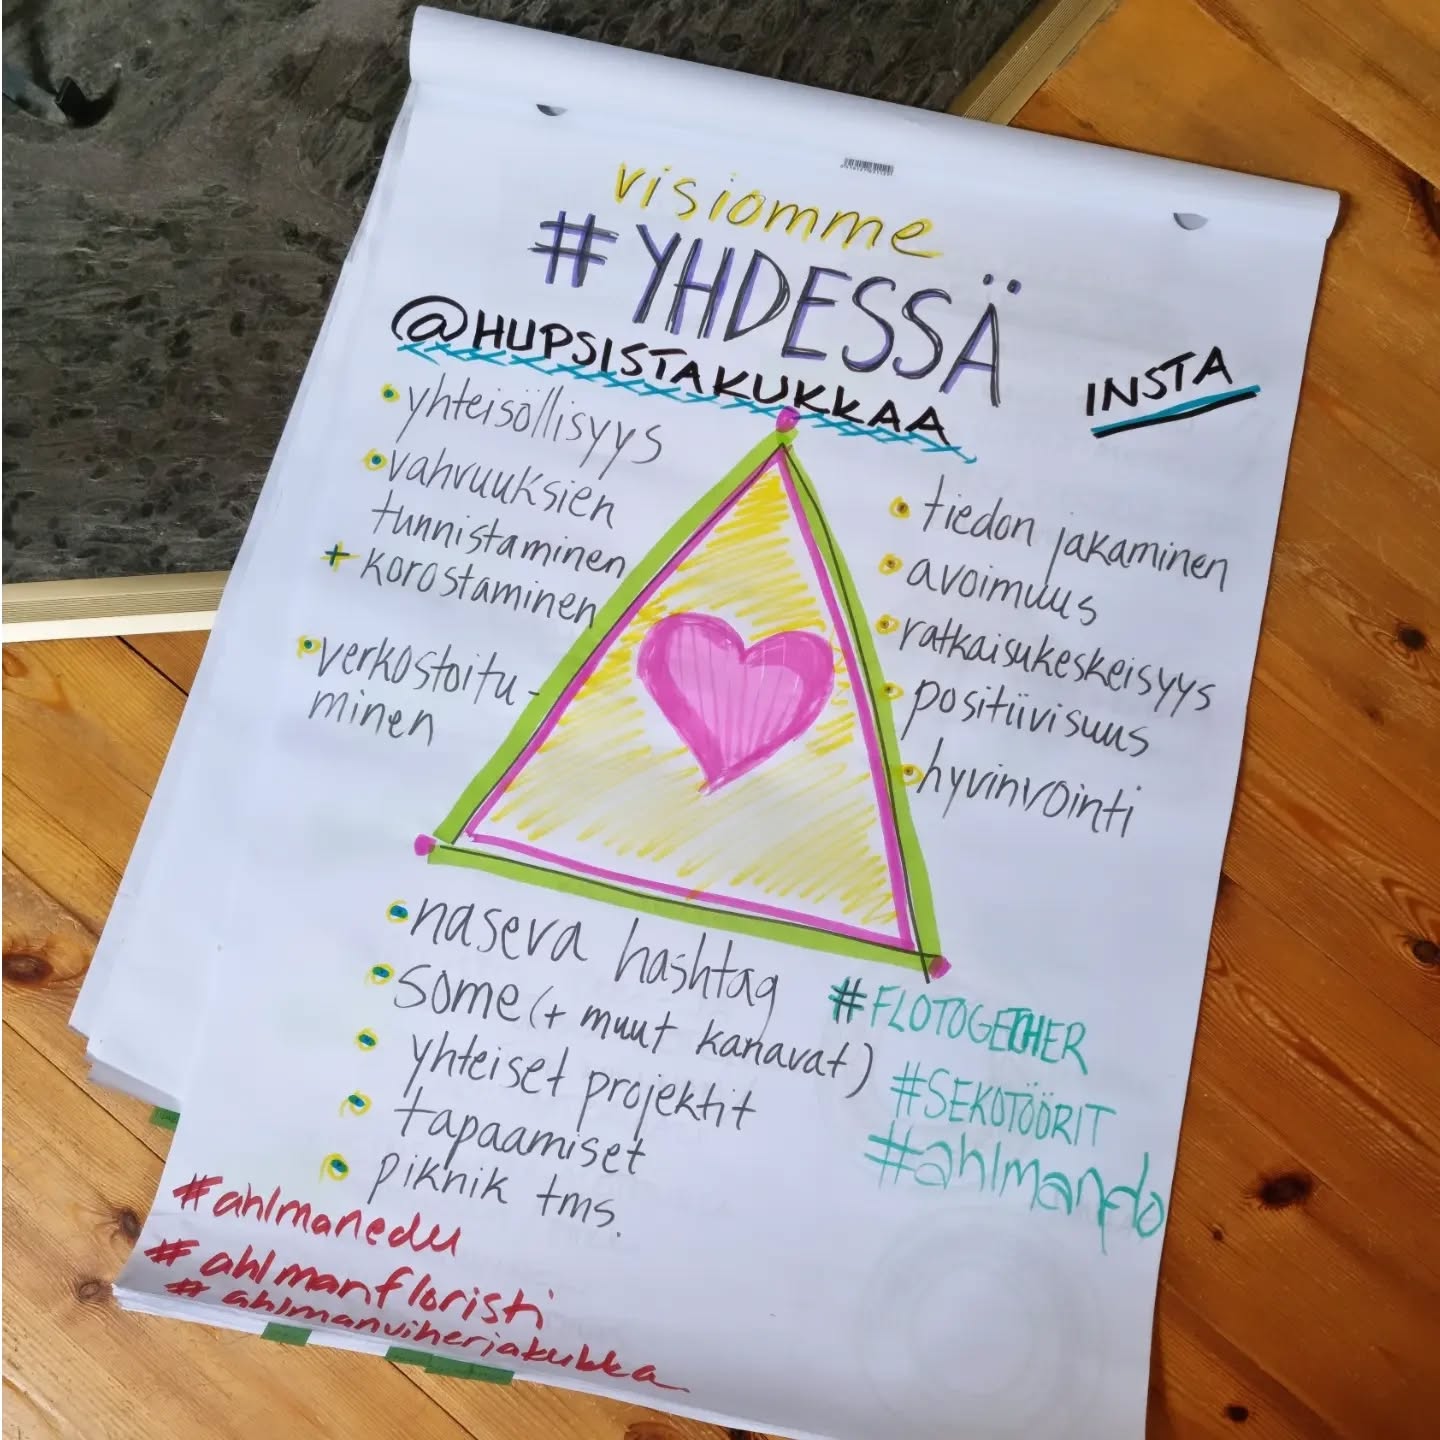 visiomme
#YHDESSÄ
@HUPSISTAKUKKAA
INSTA
• yhteisöllisyys
• vahvuuksien
tunnistaminen
+ korostaminen
• verkostoitu-
minen
• tiedon jakaminen
• avoimuus
• ratkaisukeskeisyys
• positiivisuus
• hyvinvointi
• naseva hashtag
• some (+ muut kanavat)
• yhteiset projektit
• tapaamiset
• piknik tms.
#FLOTOGETHER
#SEKOTÖÖRIT
#ahlmanflo
#ahlmanedu
#ahlmanfloristi
#ahlmanviherjakukka